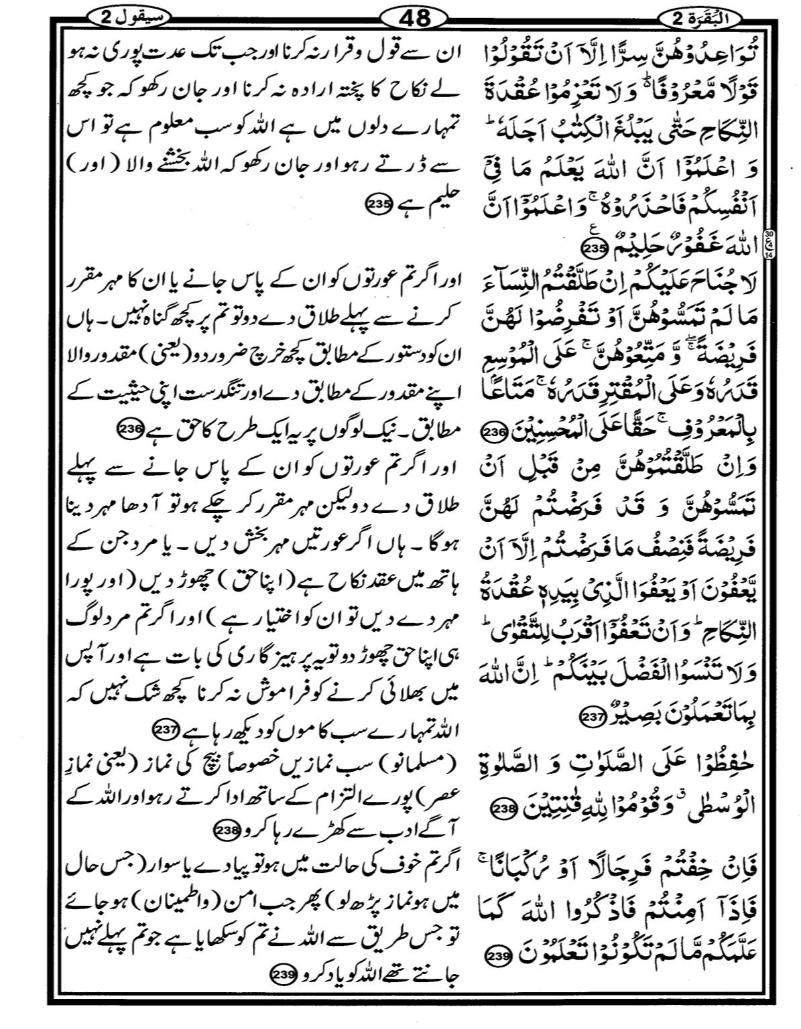 البقرة 2
48
سیقول 2
تُوَاعِدُوْهُنَّ سِرًّا اِلَّاۤ اَنْ تَقُوْلُوْا
قَوْلًا مَّعْرُوْفًا ؕ۬ وَ لَا تَعْزِمُوْا عُقْدَةَ
النِّكَاحِ حَتّٰى یَبْلُغَ الْكِتٰبُ اَجَلَهٗ ؕ
وَ اعْلَمُوْۤا اَنَّ اللّٰهَ یَعْلَمُ مَا فِیْۤ
اَنْفُسِكُمْ فَاحْذَرُوْهُ ۚ وَ اعْلَمُوْۤا اَنَّ
اللّٰهَ غَفُوْرٌ حَلِیْمٌ 235 ع
30
ع
14
لَا جُنَاحَ عَلَیْكُمْ اِنْ طَلَّقْتُمُ النِّسَآءَ
مَا لَمْ تَمَسُّوْهُنَّ اَوْ تَفْرِضُوْا لَهُنَّ
فَرِیْضَةً ۖۚ وَّ مَتِّعُوْهُنَّ ۚ عَلَى الْمُوْسِعِ
قَدَرُهٗ وَ عَلَى الْمُقْتِرِ قَدَرُهٗ ۚ مَتَاعًۢا
بِالْمَعْرُوْفِ ۚ حَقًّا عَلَى الْمُحْسِنِیْنَ 236
وَ اِنْ طَلَّقْتُمُوْهُنَّ مِنْ قَبْلِ اَنْ
تَمَسُّوْهُنَّ وَ قَدْ فَرَضْتُمْ لَهُنَّ
فَرِیْضَةً فَنِصْفُ مَا فَرَضْتُمْ اِلَّاۤ اَنْ
یَّعْفُوْنَ اَوْ یَعْفُوَا الَّذِیْ بِیَدِهٖ عُقْدَةُ
النِّكَاحِ ؕ وَ اَنْ تَعْفُوْۤا اَقْرَبُ لِلتَّقْوٰى ؕ
وَ لَا تَنْسَوُا الْفَضْلَ بَیْنَكُمْ ؕ اِنَّ اللّٰهَ
بِمَا تَعْمَلُوْنَ بَصِیْرٌ 237
حٰفِظُوْا عَلَى الصَّلَوٰتِ وَ الصَّلٰوةِ
الْوُسْطٰى ۗ وَ قُوْمُوْا لِلّٰهِ قٰنِتِیْنَ 238
فَاِنْ خِفْتُمْ فَرِجَالًا اَوْ رُكْبَانًا ۚ
فَاِذَاۤ اَمِنْتُمْ فَاذْكُرُوا اللّٰهَ كَمَا
عَلَّمَكُمْ مَّا لَمْ تَكُوْنُوْا تَعْلَمُوْنَ 239
ان سے قول و قرار نہ کرنا اور جب تک عدت پوری نہ ہو
لے نکاح کا پختہ ارادہ نہ کرنا اور جان رکھو کہ جو کچھ
تمہارے دلوں میں ہے اللہ کو سب معلوم ہے تو اس
سے ڈرتے رہو اور جان رکھو کہ اللہ بخشنے والا (اور)
حلیم ہے 235
اور اگر تم عورتوں کو ان کے پاس جانے یا ان کا مہر مقرر
کرنے سے پہلے طلاق دے دو تو تم پر کچھ گناہ نہیں۔ ہاں
ان کو دستور کے مطابق کچھ خرچ ضرور دو (یعنی) مقدور والا
اپنے مقدور کے مطابق دے اور تنگدست اپنی حیثیت کے
مطابق۔ نیک لوگوں پر یہ ایک طرح کا حق ہے 236
اور اگر تم عورتوں کو ان کے پاس جانے سے پہلے
طلاق دے دو لیکن مہر مقرر کر چکے ہو تو آدھا مہر دینا
ہوگا۔ ہاں اگر عورتیں مہر بخش دیں۔ یا مرد جن کے
ہاتھ میں عقد نکاح ہے (اپنا حق) چھوڑ دیں (اور پورا
مہر دے دیں تو ان کو اختیار ہے) اور اگر تم مرد لوگ
ہی اپنا حق چھوڑ دو تو یہ پرہیزگاری کی بات ہے اور آپس
میں بھلائی کرنے کو فراموش نہ کرنا کچھ شک نہیں کہ
اللہ تمہارے سب کاموں کو دیکھ رہا ہے 237
(مسلمانو) سب نمازیں خصوصاً بیچ کی نماز (یعنی نمازِ
عصر) پورے التزام کے ساتھ ادا کرتے رہو اور اللہ کے
آگے ادب سے کھڑے رہا کرو 238
اگر تم خوف کی حالت میں ہو تو پیادے یا سوار (جس حال
میں ہو نماز پڑھ لو) پھر جب امن (و اطمینان) ہو جائے
تو جس طریق سے اللہ نے تم کو سکھایا ہے جو تم پہلے نہیں
جانتے تھے اللہ کو یاد کرو 239